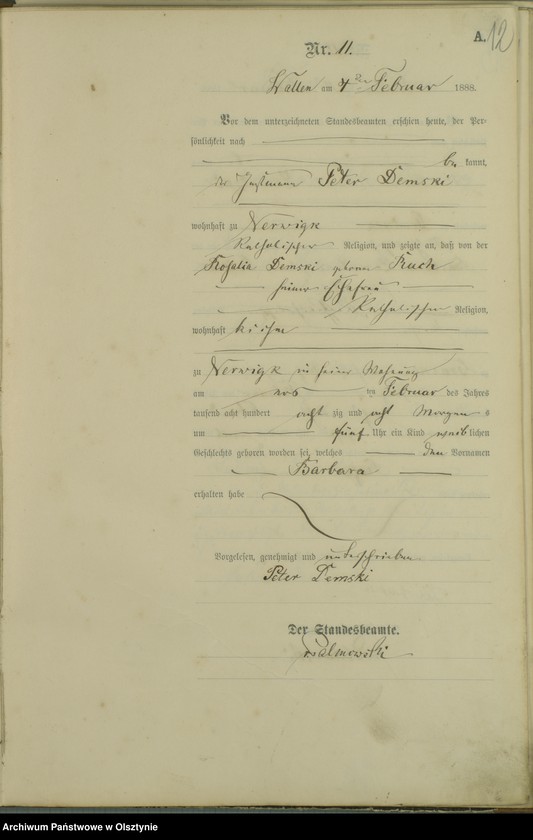 A. 12
Nr. 11.
Wallen am 4ten Februar 1888.
Vor dem unterzeichneten Standesbeamten erschien heute, der Per-
sönlichkeit nach
be kannt,
der Peter Demski
wohnhaft zu Nerwigk
Katholischer Religion, und zeigte an, daß von der
Rosalia Demski geboren
seiner Ehefrau
Katholischer Religion,
wohnhaft bei ihm
zu Nerwigk in seiner Wohnung
am ten Februar des Jahres
tausend acht hundert acht zig und acht Morgen s
um fünf Uhr ein Kind weib lichen
Geschlechts geboren worden sei, welches den Vornamen
Barbara
erhalten habe
Vorgelesen, genehmigt und unterschrieben
Peter Demski
Der Standesbeamte.
Palmowski
Archiwum Państwowe w Olsztynie